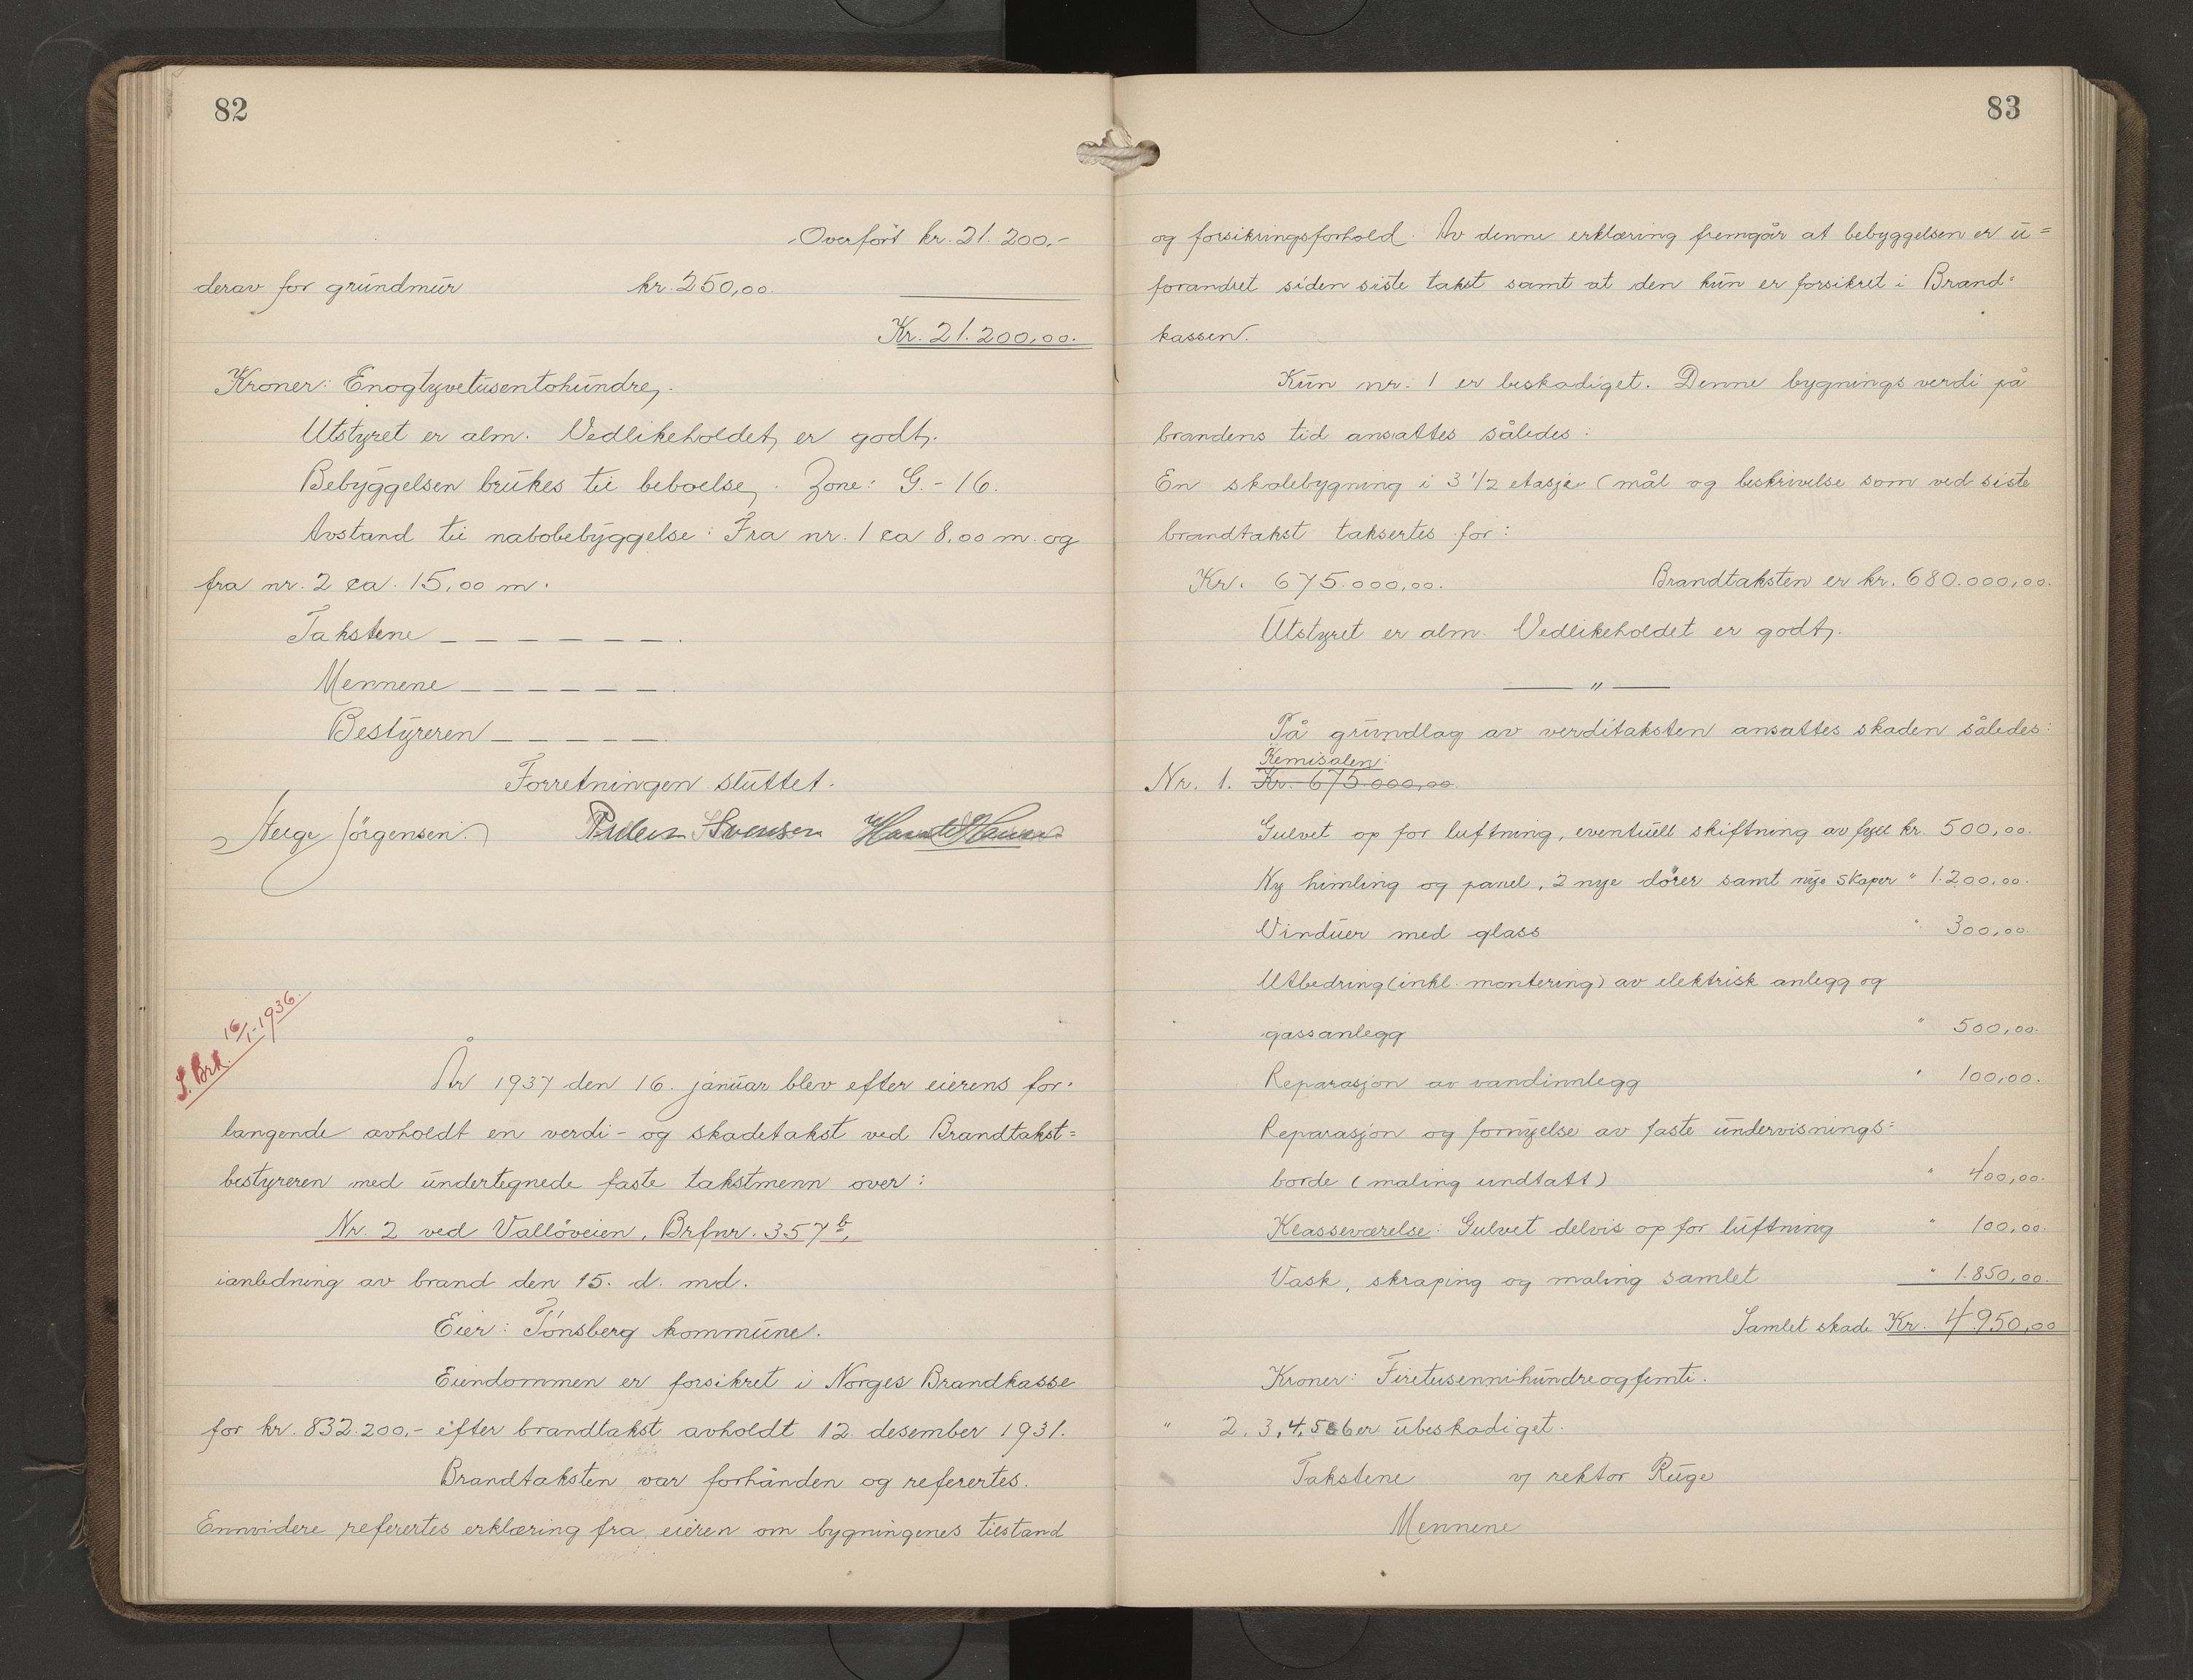 82
Overført kr. 21.200,-
derav for grundmur kr. 250,00.
Kr. 21.200,00.
Kroner: Enogtyvetusentohundre,.
Utstyret er alm. Vedlikeholdet er godt.
Bebyggelsen brukes til beboelse. Zone: G.-16.
Avstand til nabobebyggelse: Fra nr. 1 ca 8,00 m. og
fra nr. 2 ca. 15,00 m.
Takstene — — — — — .
Mennene — — — — — .
Bestyreren — — — — —
Forretningen sluttet.
Helge Jörgensen. Svensen
S. Brk. 16/1-1936.
År 1937 den 16. januar blev efter eierens for-
langende avholdt en verdi- og skadetakst ved Brandtakst=
bestyreren med undertegnede faste takstmenn over:
Nr. 2 ved Vallöveien, Brfnr. 357 b,
ianledning av brand den 15. d. md.
Eier: Tønsberg kommune.
Eiendommen er forsikret i Norges Brandkasse
for kr. 832.200,- efter brandtakst avholdt 12. desember 1931.
Brandtaksten var forhånden og referertes.
Ennvidere referertes erklæring fra eieren om bygningenes tilstand
83
og forsikringsforhold. Av denne erklæring fremgår at bebyggelsen er u=
forandret siden siste takst samt at den kun er forsikret i Brand=
kassen.
Kun nr. 1 er beskadiget. Denne bygnings verdi på
brandens tid ansattes således:
En skolebygning i 3 1/2 etasje (mål og beskrivelse som ved siste
brandtakst taksertes for:
Kr. 675.000,00. Brandtaksten er kr. 680.000,00.
Utstyret er alm. Vedlikeholdet er godt.
— " —
På grundlag av verditaksten ansattes skaden således:
Kemisalen:
Nr. 1. Kr. 675.000,00
Gulvet op for luftning, eventuell skiftning av fyll kr. 500,00.
Ny himling og panel, 2 nye dører samt nye skaper " 1.200,00.
Vinduer med glass " 300,00.
Utbedring (inkl. montering) av elektrisk anlegg og
gassanlegg " 500,00.
Reparasjon av vandinnlegg " 100,00.
Reparasjon og fornyelse av faste undervisnings=
borde (maling undtatt) " 400,00.
Klasseværelse: Gulvet delvis op for luftning " 100,00.
Vask, skraping og maling samlet " 1.850,00.
Samlet skade Kr. 4.950,00
Kroner: Firetusennihundreogfemti.
" 2, 3, 4, 5 & 6 er ubeskadiget.
Takstene v/ rektor Ruge
Mennene